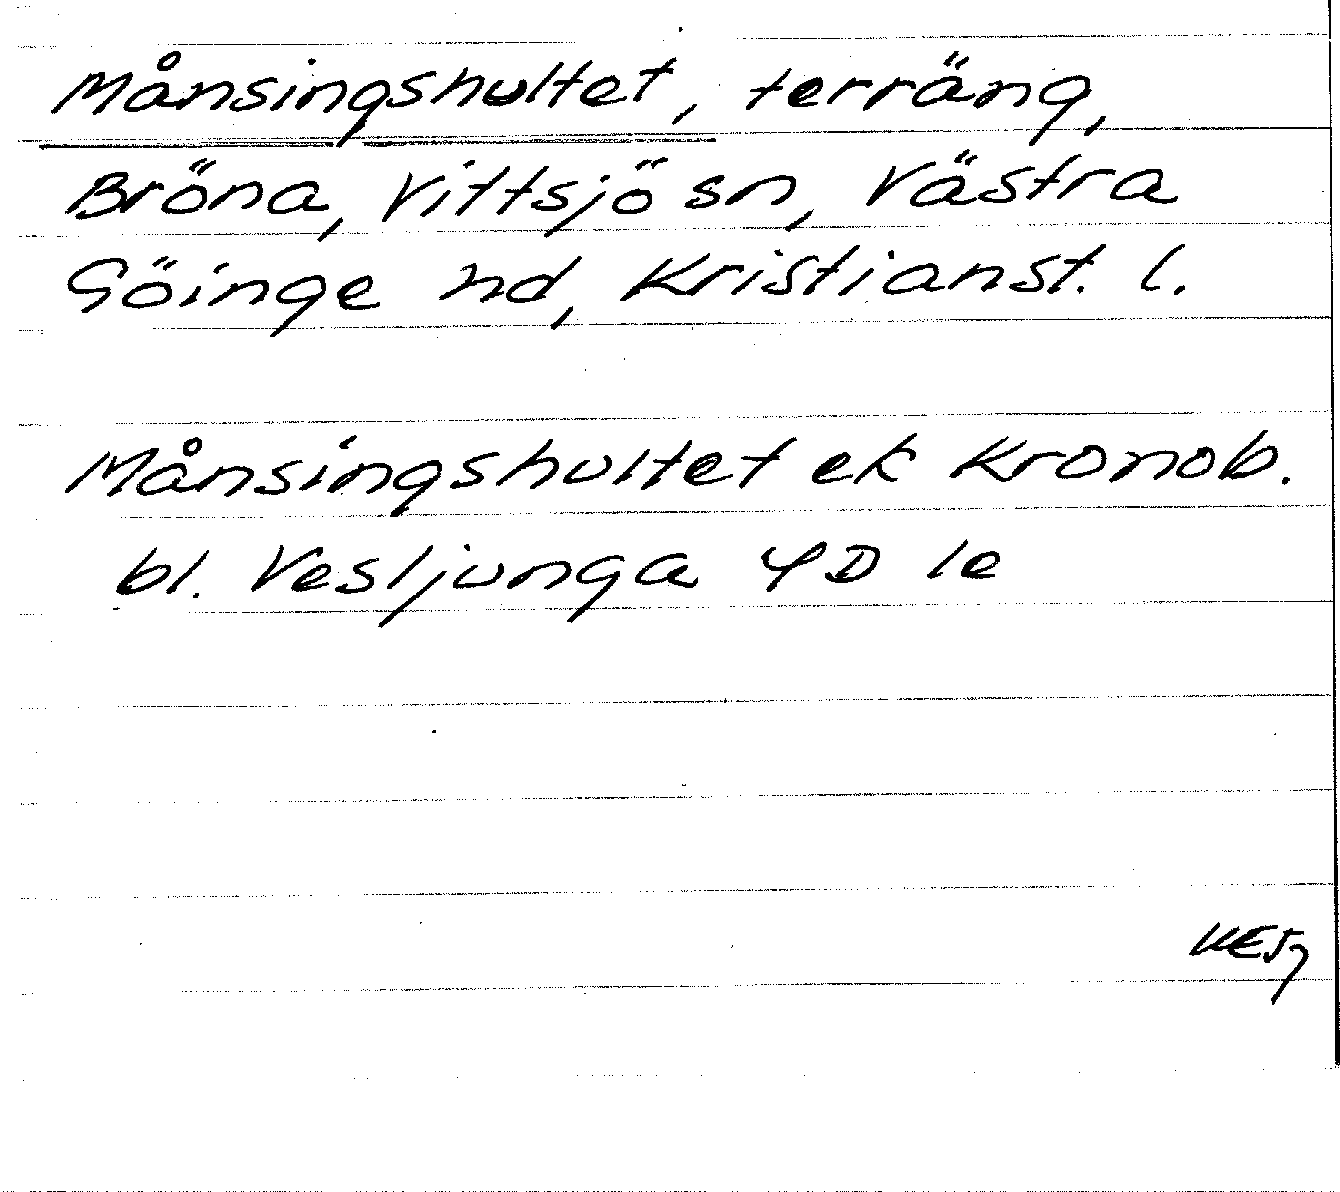 Månsingshultet, terräng,
Bröna, Vittsjö sn, Västra
Göinge hd, Kristianst. l.
Månsingshultet ek Kronob.
bl. Vesljunga 4D le